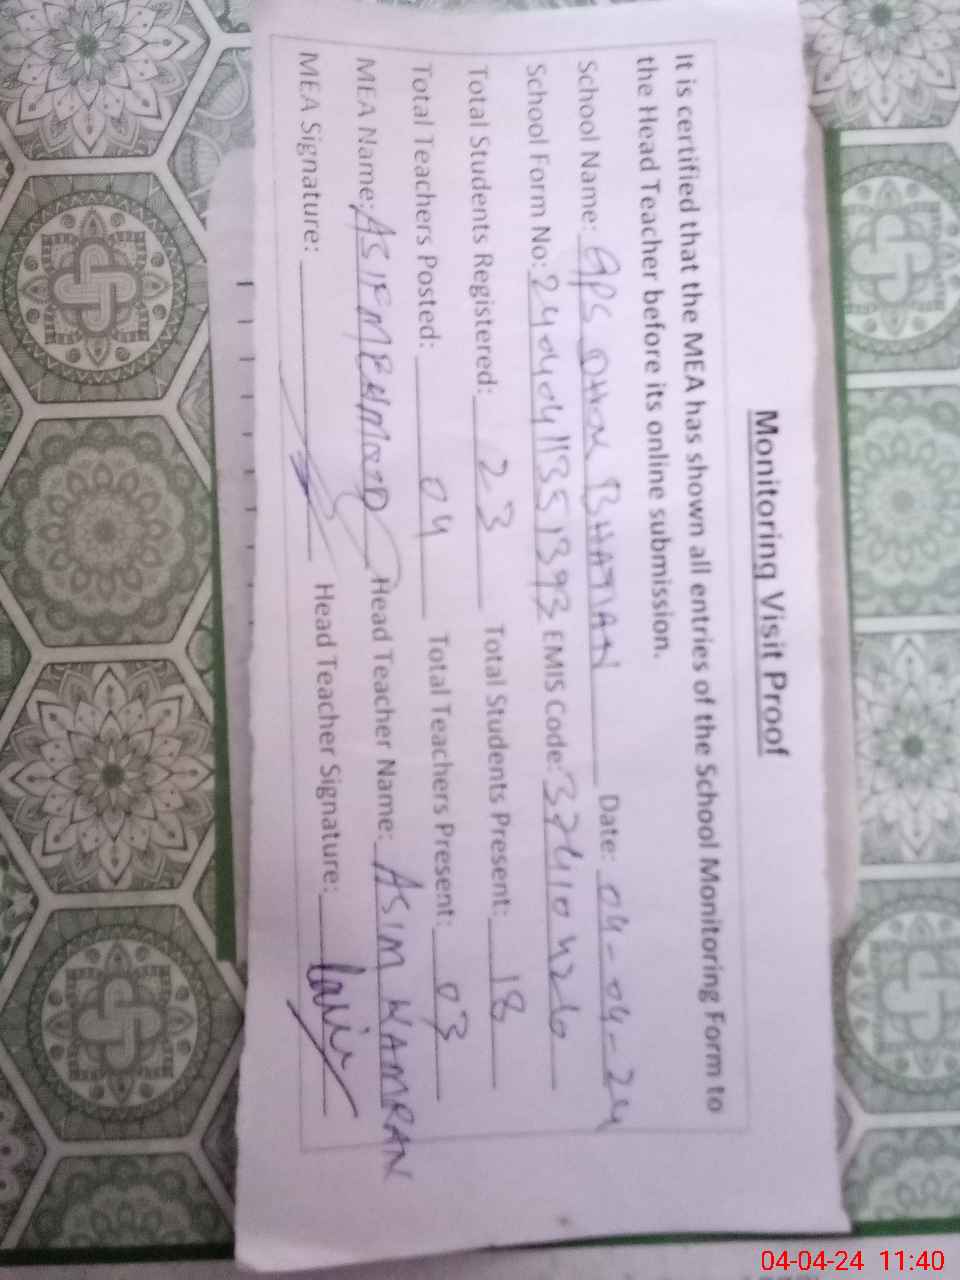 Monitoring Visit Proof
It is certified that the MEA has shown all entries of the School Monitoring Form to
the Head Teacher before its online submission.
School Name: GPS DHOK BHATIAN Date: 04-04-24
School Form No: EMIS Code: 37410426
Total Students Registered: 23 Total Students Present: 18
Total Teachers Posted: 04 Total Teachers Present: 03
MEA Name: ASIF MEHMOOD Head Teacher Name: ASIM KAMRAN
MEA Signature: Head Teacher Signature:
04-04-24 11:40